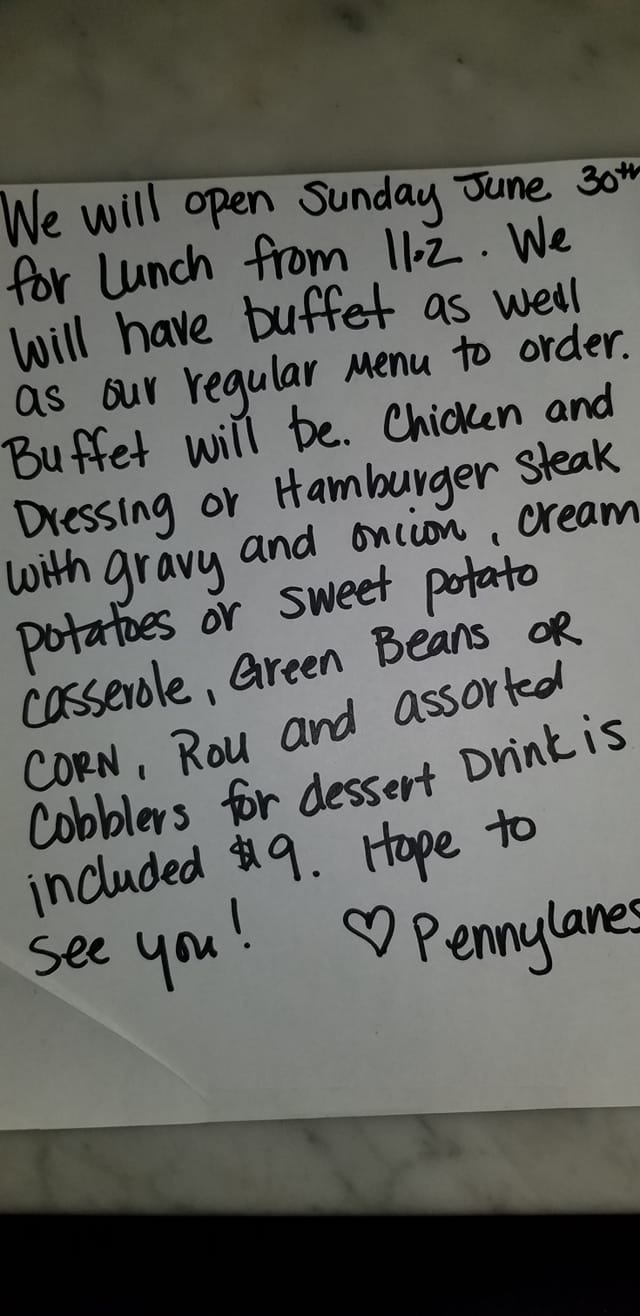 We will open Sunday June 30th
for Lunch from 11-2. We
will have buffet as well
as our regular Menu to order.
Buffet will be. Chicken and
Dressing or Hamburger Steak
with gravy and onion, cream
potatoes or sweet potato
casserole, Green Beans OR
CORN, Roll and assorted
Cobblers for dessert Drink is
included $9. Hope to
see you! ♡ Pennylanes